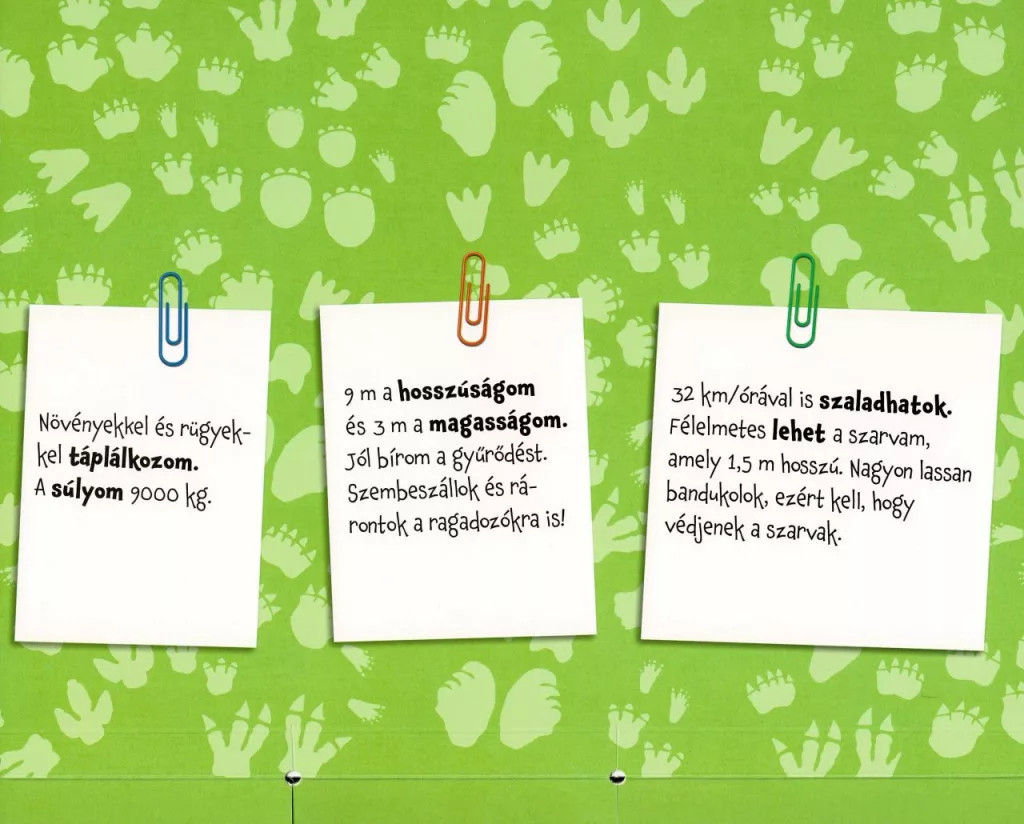 Növényekkel és rügyek-
kel táplálkozom.
A súlyom 9000 kg.
9 m a hosszúságom
és 3 m a magasságom.
Jól bírom a gyűrődést.
Szembeszállok és rá-
rontok a ragadozókra is!
32 km/órával is szaladhatok.
Félelmetes lehet a szarvam,
amely 1,5 m hosszú. Nagyon lassan
bandukolok, ezért kell, hogy
védjenek a szarvak.